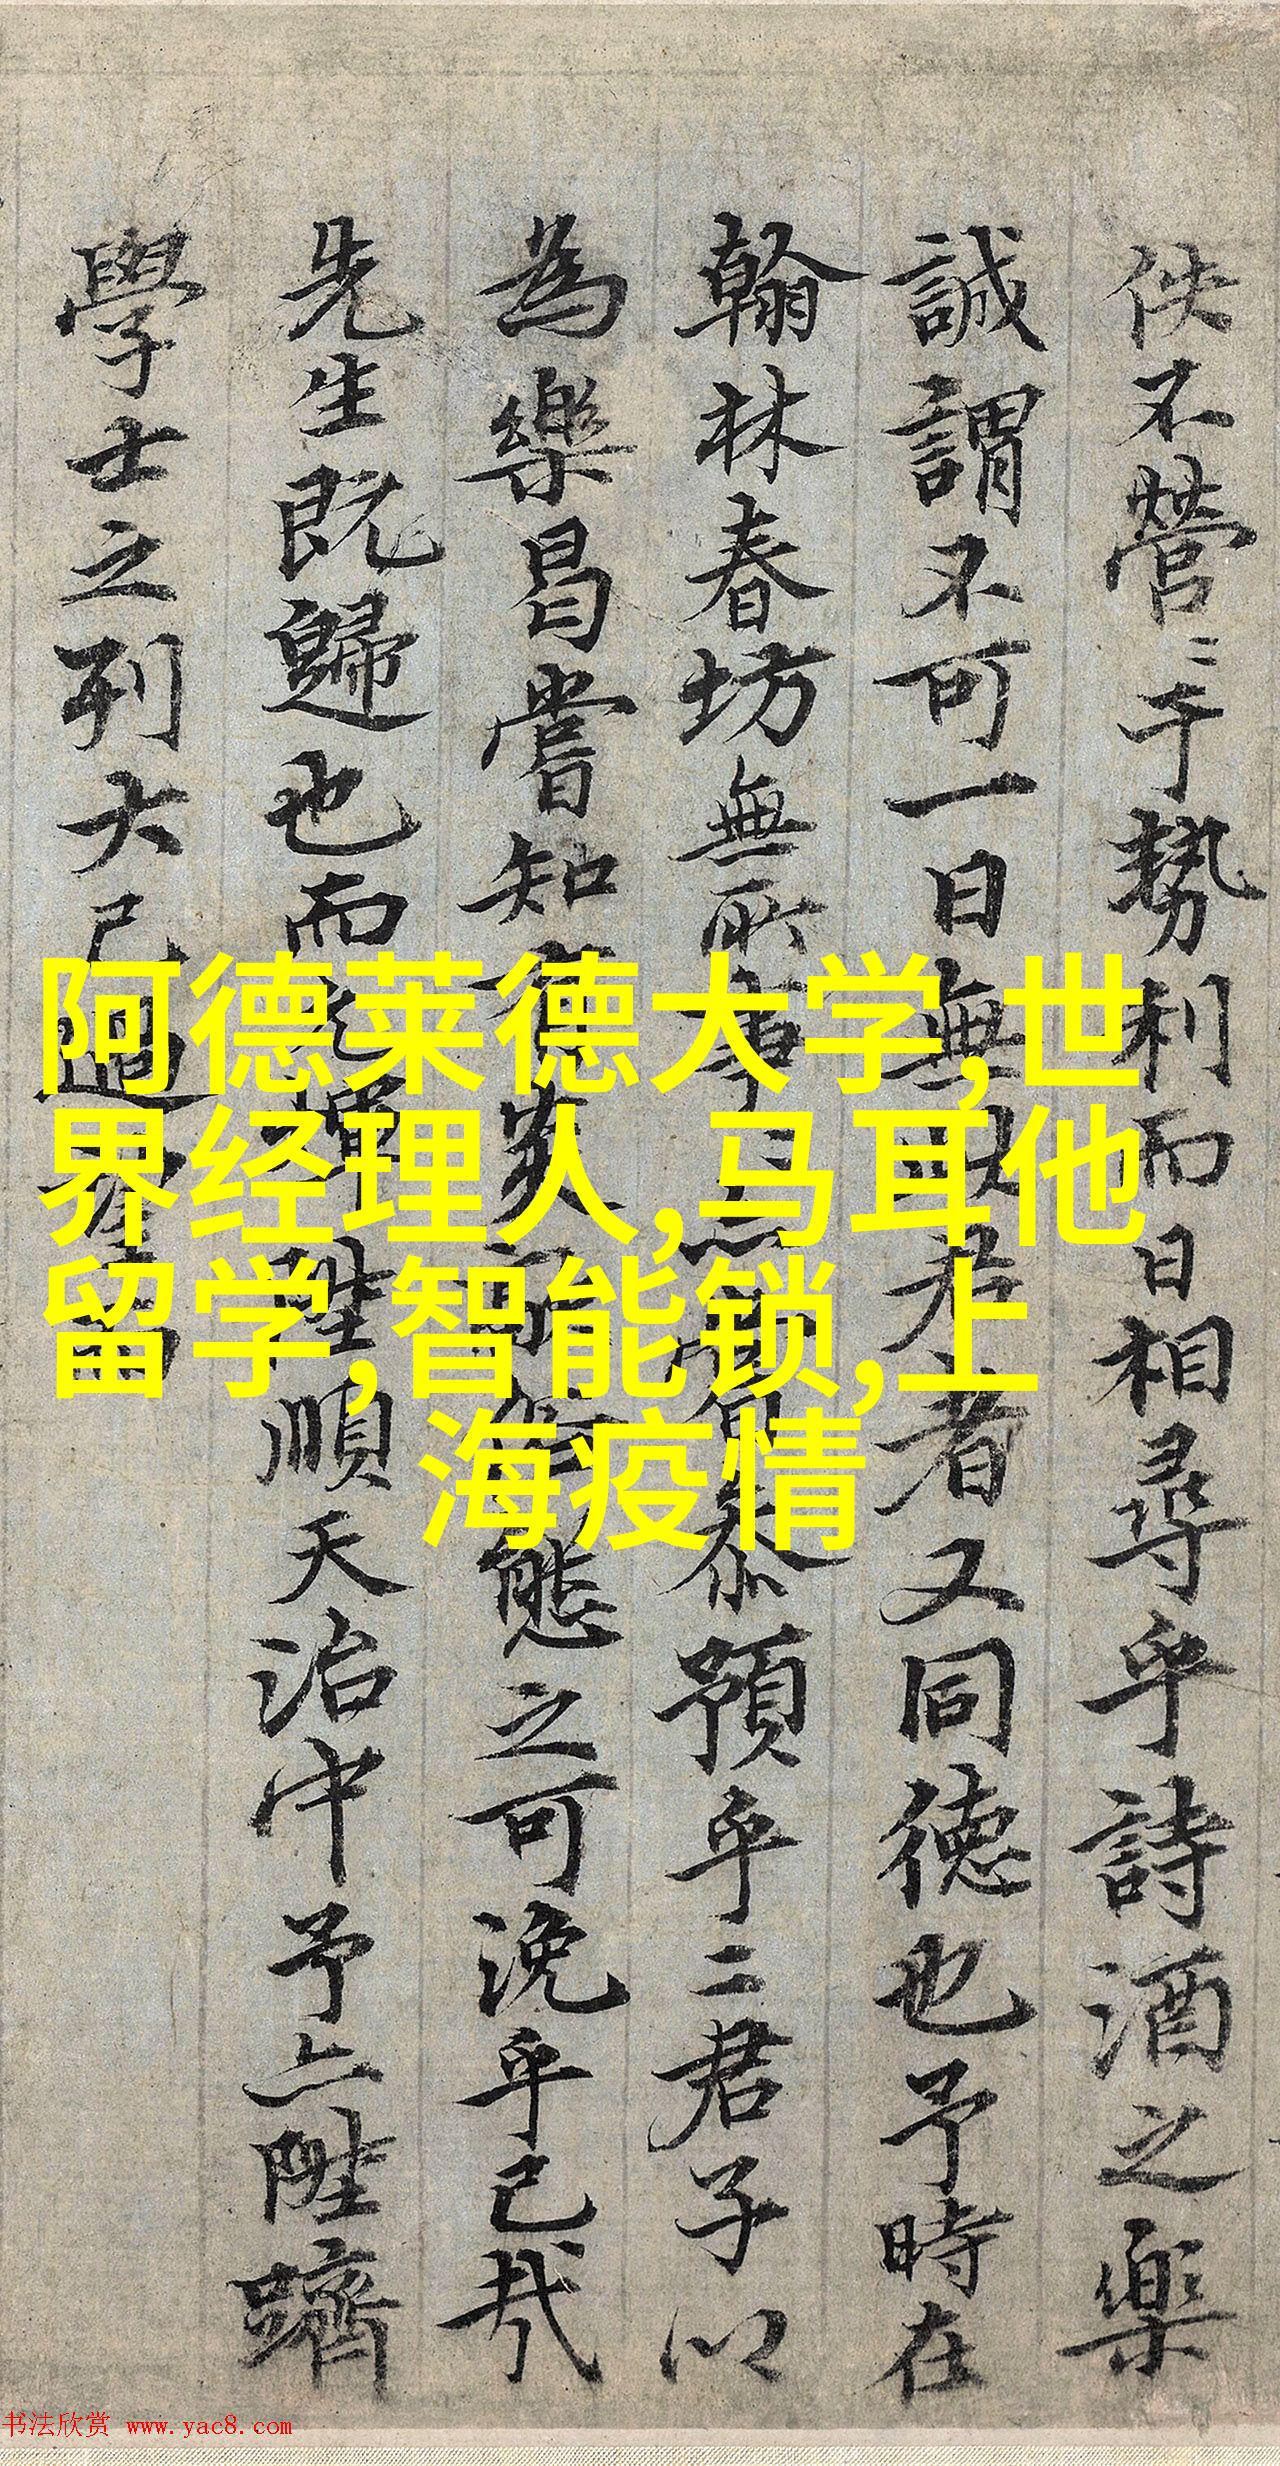 佚不營〻于勢利而日相尋乎詩酒之樂
誠謂不可一日無此君者又同德也予時在
翰林春坊無所事
預乎二君子以
為樂曷嘗知
態之可浼乎已哉
先生既歸也而
陞順天治中予亦陞躋
學士之列大已過望
阿德莱德大学,世
界经理人,马耳他
留学,智能锁,上
海疫情
书法欣赏 www.yac8.com